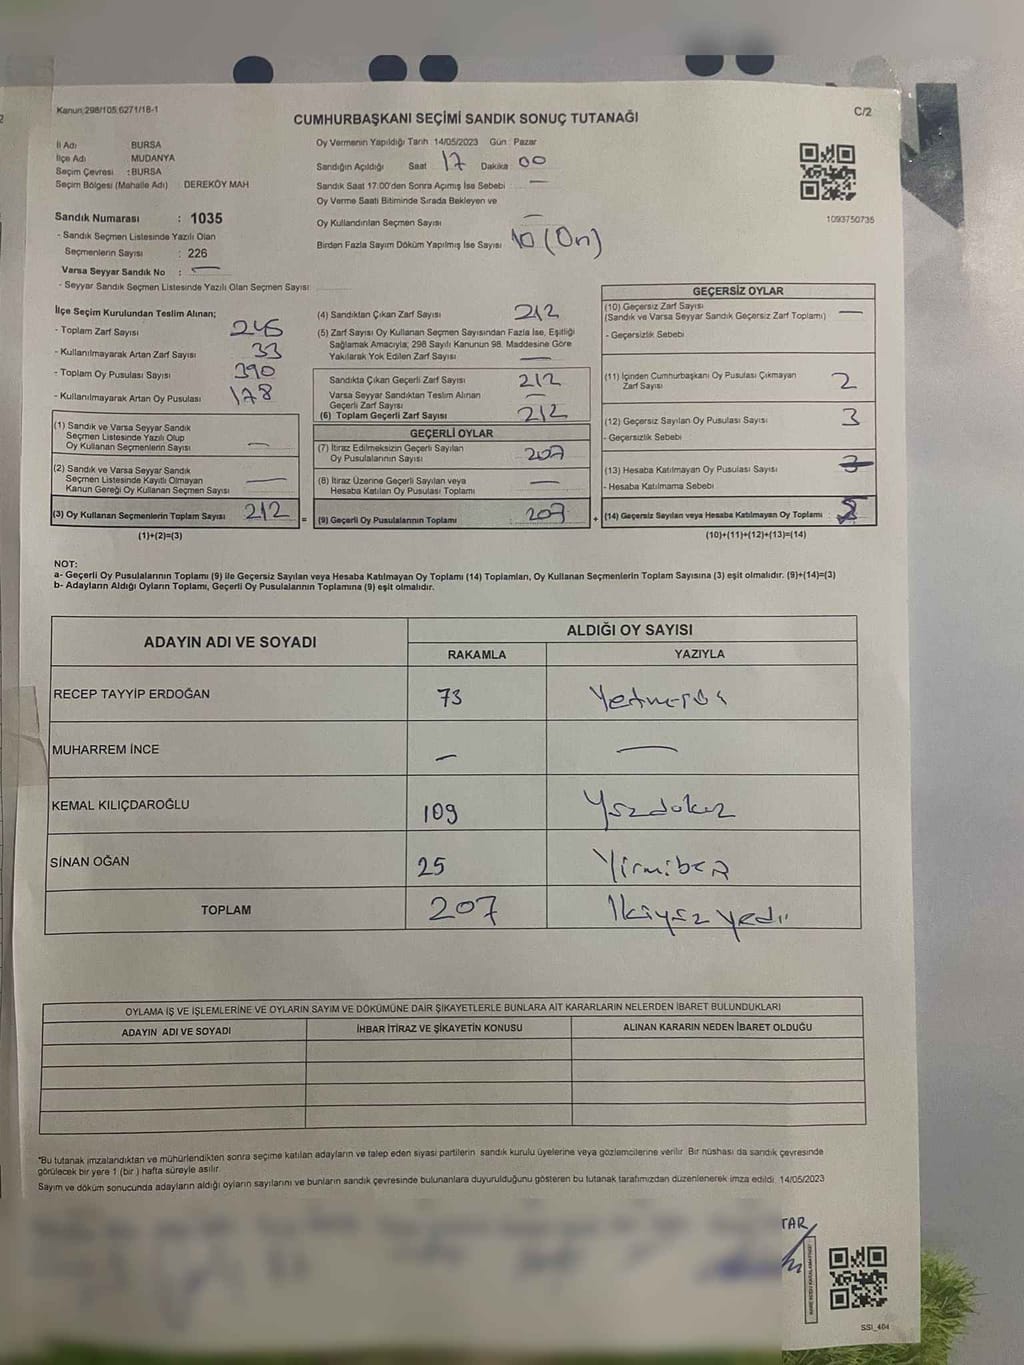 Kanun:298/105,6271/18-1
C/2
CUMHURBAŞKANI SEÇİMİ SANDIK SONUÇ TUTANAĞI
İl Adı BURSA
İlçe Adı MUDANYA
Seçim Çevresi : BURSA
Seçim Bölgesi (Mahalle Adı) DEREKÖY MAH
Sandık Numarası : 1035
- Sandık Seçmen Listesinde Yazılı Olan
Seçmenlerin Sayısı : 226
Varsa Seyyar Sandık No : —
- Seyyar Sandık Seçmen Listesinde Yazılı Olan Seçmen Sayısı
Oy Vermenin Yapıldığı Tarih 14/05/2023 Gün : Pazar
Sandığın Açıldığı Saat 17 Dakika 00
Sandık Saat 17:00'den Sonra Açımış İse Sebebi —
Oy Verme Saati Bitiminde Sırada Bekleyen ve
Oy Kullandırılan Seçmen Sayısı —
Birden Fazla Sayım Döküm Yapılmış İse Sayısı 10 (On)
1093750735
İlçe Seçim Kurulundan Teslim Alınan;
- Toplam Zarf Sayısı 245
- Kullanılmayarak Artan Zarf Sayısı 33
- Toplam Oy Pusulası Sayısı 390
- Kullanılmayarak Artan Oy Pusulası 178
(1) Sandık ve Varsa Seyyar Sandık
Seçmen Listesinde Yazılı Olup
Oy Kullanan Seçmenlerin Sayısı —
(2) Sandık ve Varsa Seyyar Sandık
Seçmen Listesinde Kayıtlı Olmayan
Kanun Gereği Oy Kullanan Seçmen Sayısı —
(3) Oy Kullanan Seçmenlerin Toplam Sayısı 212 =
(1)+(2)=(3)
(4) Sandıktan Çıkan Zarf Sayısı 212
(5) Zarf Sayısı Oy Kullanan Seçmen Sayısından Fazla İse, Eşitliği
Sağlamak Amacıyla; 298 Sayılı Kanunun 98. Maddesine Göre
Yakılarak Yok Edilen Zarf Sayısı —
Sandıkta Çıkan Geçerli Zarf Sayısı 212
Varsa Seyyar Sandıktan Teslim Alınan
Geçerli Zarf Sayısı —
(6) Toplam Geçerli Zarf Sayısı 212
GEÇERLİ OYLAR
(7) İtiraz Edilmeksizin Geçerli Sayılan
Oy Pusulalarının Sayısı 207
(8) İtiraz Üzerine Geçerli Sayılan veya
Hesaba Katılan Oy Pusulası Toplamı —
(9) Geçerli Oy Pusulalarının Toplamı 207 +
GEÇERSİZ OYLAR
(10) Geçersiz Zarf Sayısı —
(Sandık ve Varsa Seyyar Sandık Geçersiz Zarf Toplamı)
- Geçersizlik Sebebi
(11) İçinden Cumhurbaşkanı Oy Pusulası Çıkmayan
Zarf Sayısı 2
(12) Geçersiz Sayılan Oy Pusulası Sayısı 3
- Geçersizlik Sebebi
(13) Hesaba Katılmayan Oy Pusulası Sayısı
- Hesaba Katılmama Sebebi
(14) Geçersiz Sayılan veya Hesaba Katılmayan Oy Toplamı
(10)+(11)+(12)+(13)=(14)
NOT:
a- Geçerli Oy Pusulalarının Toplamı (9) ile Geçersiz Sayılan veya Hesaba Katılmayan Oy Toplamı (14) Toplamları, Oy Kullanan Seçmenlerin Toplam Sayısına (3) eşit olmalıdır. (9)+(14)=(3)
b- Adayların Aldığı Oyların Toplamı, Geçerli Oy Pusulalarının Toplamına (9) eşit olmalıdır.
ADAYIN ADI VE SOYADI ALDIĞI OY SAYISI
RAKAMLA YAZIYLA
RECEP TAYYİP ERDOĞAN 73 Yetmişüç
MUHARREM İNCE — —
KEMAL KILIÇDAROĞLU 109 Yüzdokuz
SİNAN OĞAN 25 Yirmibeş
TOPLAM 207 İkiyüz yedi
OYLAMA İŞ VE İŞLEMLERİNE VE OYLARIN SAYIM VE DÖKÜMÜNE DAİR ŞİKAYETLERLE BUNLARA AİT KARARLARIN NELERDEN İBARET BULUNDUKLARI
ADAYIN ADI VE SOYADI İHBAR İTİRAZ VE ŞİKAYETİN KONUSU ALINAN KARARIN NEDEN İBARET OLDUĞU
*Bu tutanak imzalandıktan ve mühürlendikten sonra seçime katılan adayların ve talep eden siyasi partilerin sandık kurulu üyelerine veya gözlemcilerine verilir. Bir nüshası da sandık çevresinde
görülecek bir yere 1 (bir ) hafta süreyle asılır.
Sayım ve döküm sonucunda adayların aldığı oyların sayılarını ve bunların sandık çevresinde bulunanlara duyurulduğunu gösteren bu tutanak tarafımızdan düzenlenerek imza edildi. 14/05/2023
TAR
SSI_404